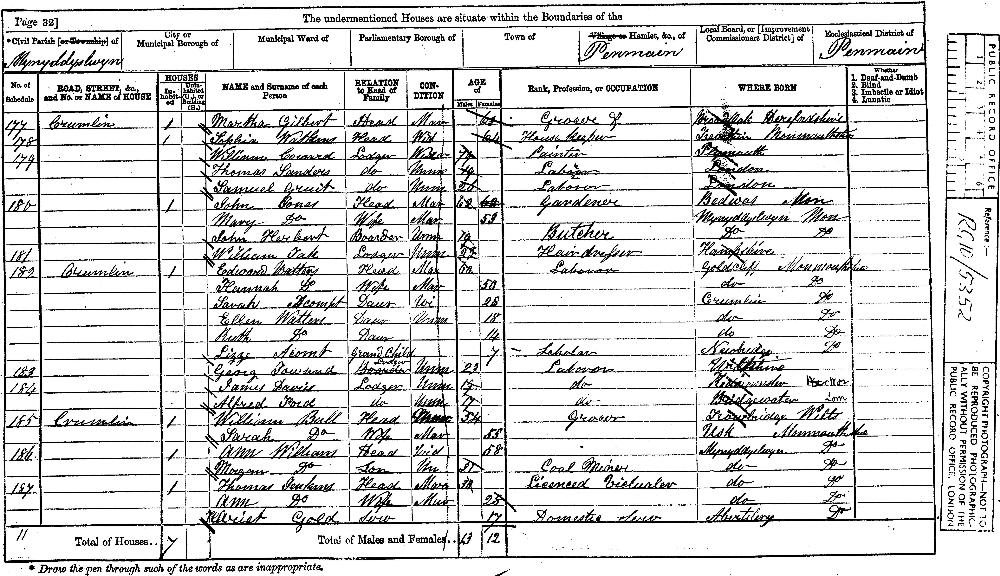 Page 32]
The undermentioned Houses are situate within the Boundaries of the
*Civil Parish [or Township] of
City or Municipal Borough of
Municipal Ward of
Parliamentary Borough of
Town of
Village or Hamlet, &c., of
Local Board, or [Improvement Commissioners District] of
Ecclesiastical District of
Mynyddyslwyn
Penmain
Penmain
No. of Schedule
ROAD, STREET, &c., and No. or NAME of HOUSE
HOUSES
Inhabited
Uninhabited (U.), or Building (B.)
NAME and Surname of each Person
RELATION to Head of Family
CONDITION
AGE of
Males
Females
Rank, Profession, or OCCUPATION
WHERE BORN
Whether
1. Deaf-and-Dumb
2. Blind
3. Imbecile or Idiot
4. Lunatic
177 Crumlin 1 Martha Gilbert Head Mar 60 Grocer Herefordshire
178 1 Sophia Watkins Head Wid 64 House Keeper Monmouthshire
179 William Lodger 74 Painter Plymouth
Thomas Sanders do Unm 49 Labour London
Samuel do Unm 26 Labour London
180 1 John Jones Head Mar 62 Gardener Bedwas Mon
Mary Do Wife Mar 53 Mynyddyslwyn Mon
John Herbert Boarder Unm 19 Butcher Do Do
181 William Lodger Unm Hair dresser Hampshire
182 Crumlin 1 Edward Head Mar Labour Goldcliff Monmouthshire
Hannah Do Wife Mar 50 do Do
Sarah Daur Wi 28 Crumlin Do
Ellen Daur Unm 18 do Do
Ruth Do Daur 14 do Do
Lizze Grand Child 7 Scholar Newbridge Do
183 Georg Lodger Unm 23 Labour Wiltshire
184 James Davis Lodger Unm do
Alfred Ford do Unm 17 do Bridgewater Som
185 Crumlin 1 William Bull Head 54 Grocer Trowbridge Wilts
Sarah Do Wife Mar 55 Usk Monmouthshire
186 1 Ann William Head Wid 58 Mynyddyslwyn Do
Morgan Do Son Un 31 Coal Miner do Do
187 1 Thomas Jenkins Head Mar 30 Licenced Victualer do Do
Ann Do Wife Mar 25 do Do
Gold Serv 17 Domestic Serv Abertilery Do
11 Total of Houses.. 7 Total of Males and Females.. 13 12
* Draw the pen through such of the words as are inappropriate.
PUBLIC RECORD OFFICE
Reference:-
RG10/5352
COPYRIGHT PHOTOGRAPH—NOT TO BE REPRODUCED PHOTOGRAPHICALLY WITHOUT PERMISSION OF THE PUBLIC RECORD OFFICE, LONDON